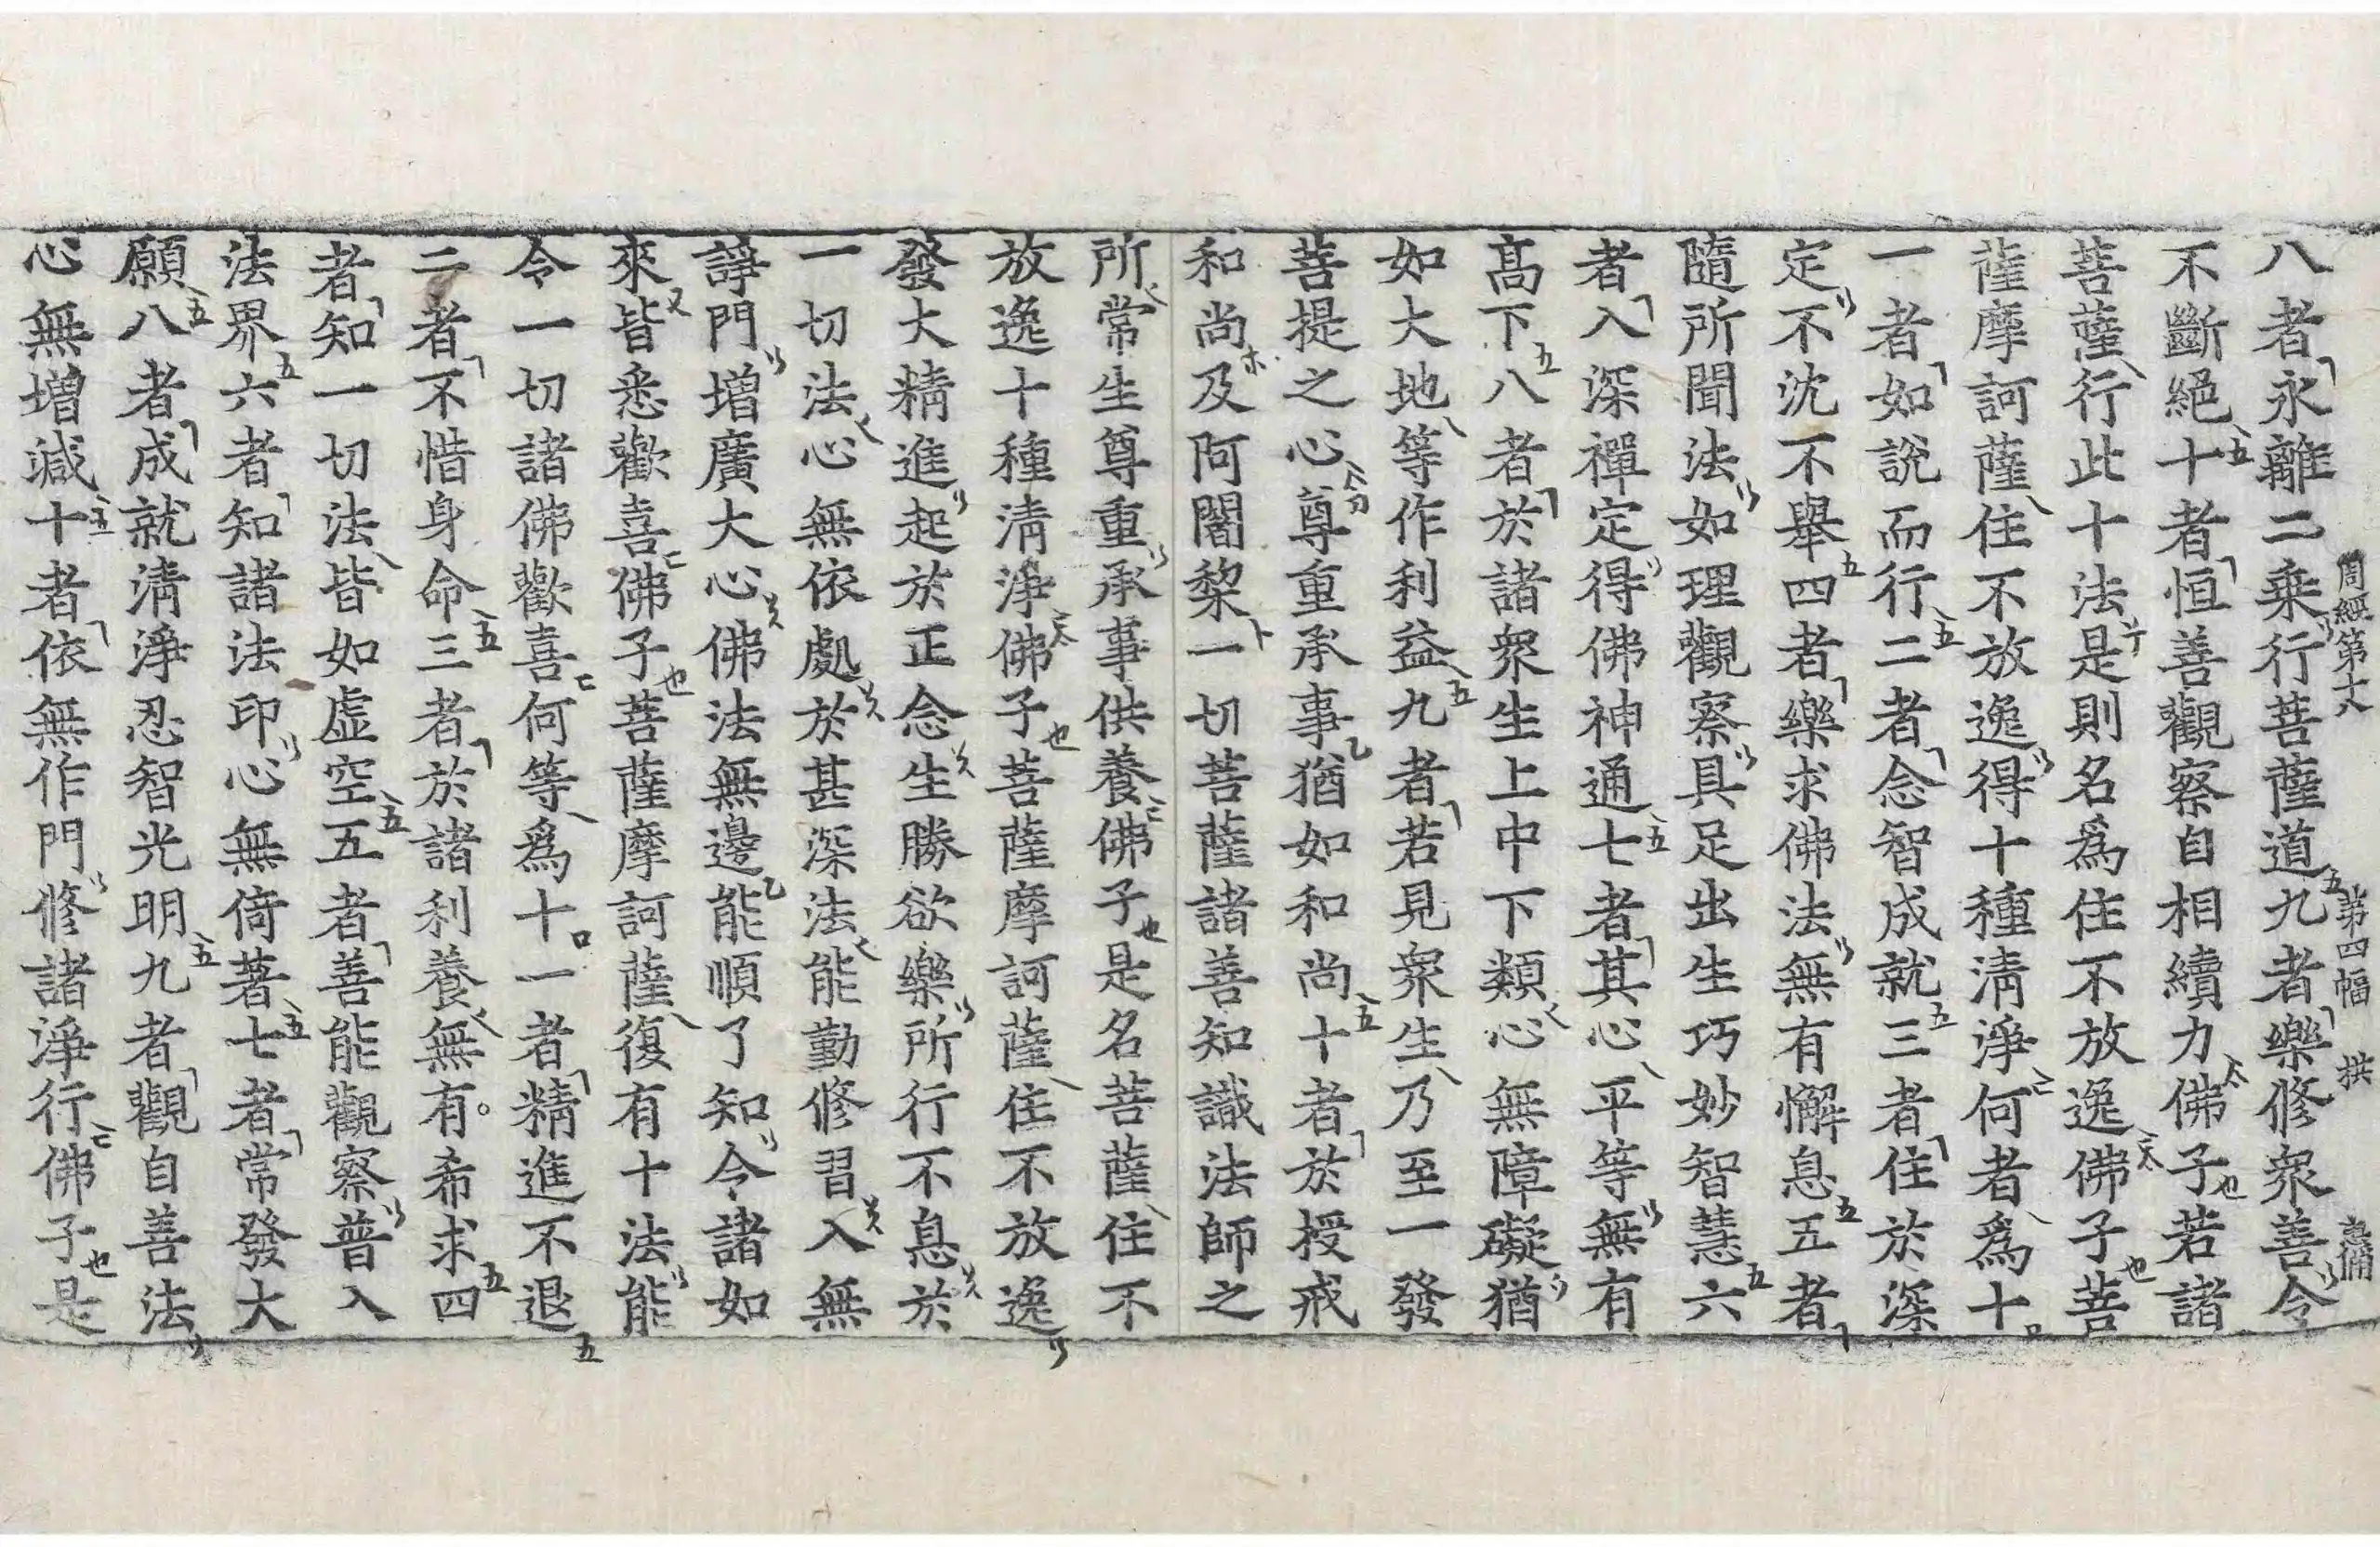 周經第十八　第四幅　拱
八者永離二乘行菩薩道九者樂修衆善令
不斷絕十者恒善觀察自相續力佛子若諸
菩薩行此十法是則名爲住不放逸佛子菩
薩摩訶薩住不放逸得十種清淨何者爲十
一者如說而行二者念智成就三者住於深
定不沈不舉四者樂求佛法無有懈息五者
隨所聞法如理觀察具足出生巧妙智慧六
者入深禪定得佛神通七者其心平等無有
高下八者於諸衆生上中下類心無障礙猶
如大地等作利益九者若見衆生乃至一發
菩提之心尊重承事猶如和尚十者於授戒
和尚及阿闍棃一切菩薩諸善知識法師之
所常生尊重承事供養佛子是名菩薩住不
放逸十種清淨佛子菩薩摩訶薩住不放逸
發大精進起於正念生勝欲樂所行不息於
一切法心無依處於甚深法能勤修習入無
諍門增廣大心佛法無邊能順了知令諸如
來皆悉歡喜佛子菩薩摩訶薩復有十法能
令一切諸佛歡喜何等爲十一者精進不退
二者不惜身命三者於諸利養無有希求四
者知一切法皆如虛空五者善能觀察普入
法界六者知諸法印心無倚著七者常發大
願八者成就清淨忍智光明九者觀自善法
心無增減十者依無作門修諸淨行佛子是